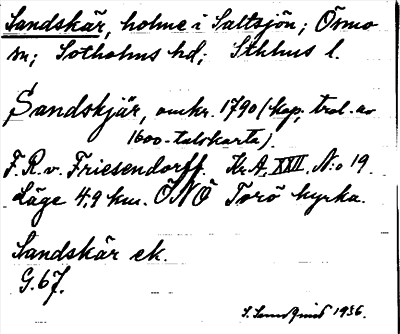 Sandskär, holme i Saltsjön; Ösmo
sn; Sotholms hd; Sthlms l.
Sandskjär, omkr. 1790 (kop. trol. av
1600-talskarta).
F. R. v. Friesendorff. Kr.A. XXII, N:o 19.
Läge 4,9 km. ÖNÖ Torö kyrka.
Sandskär ek.
G. 67.
1936.